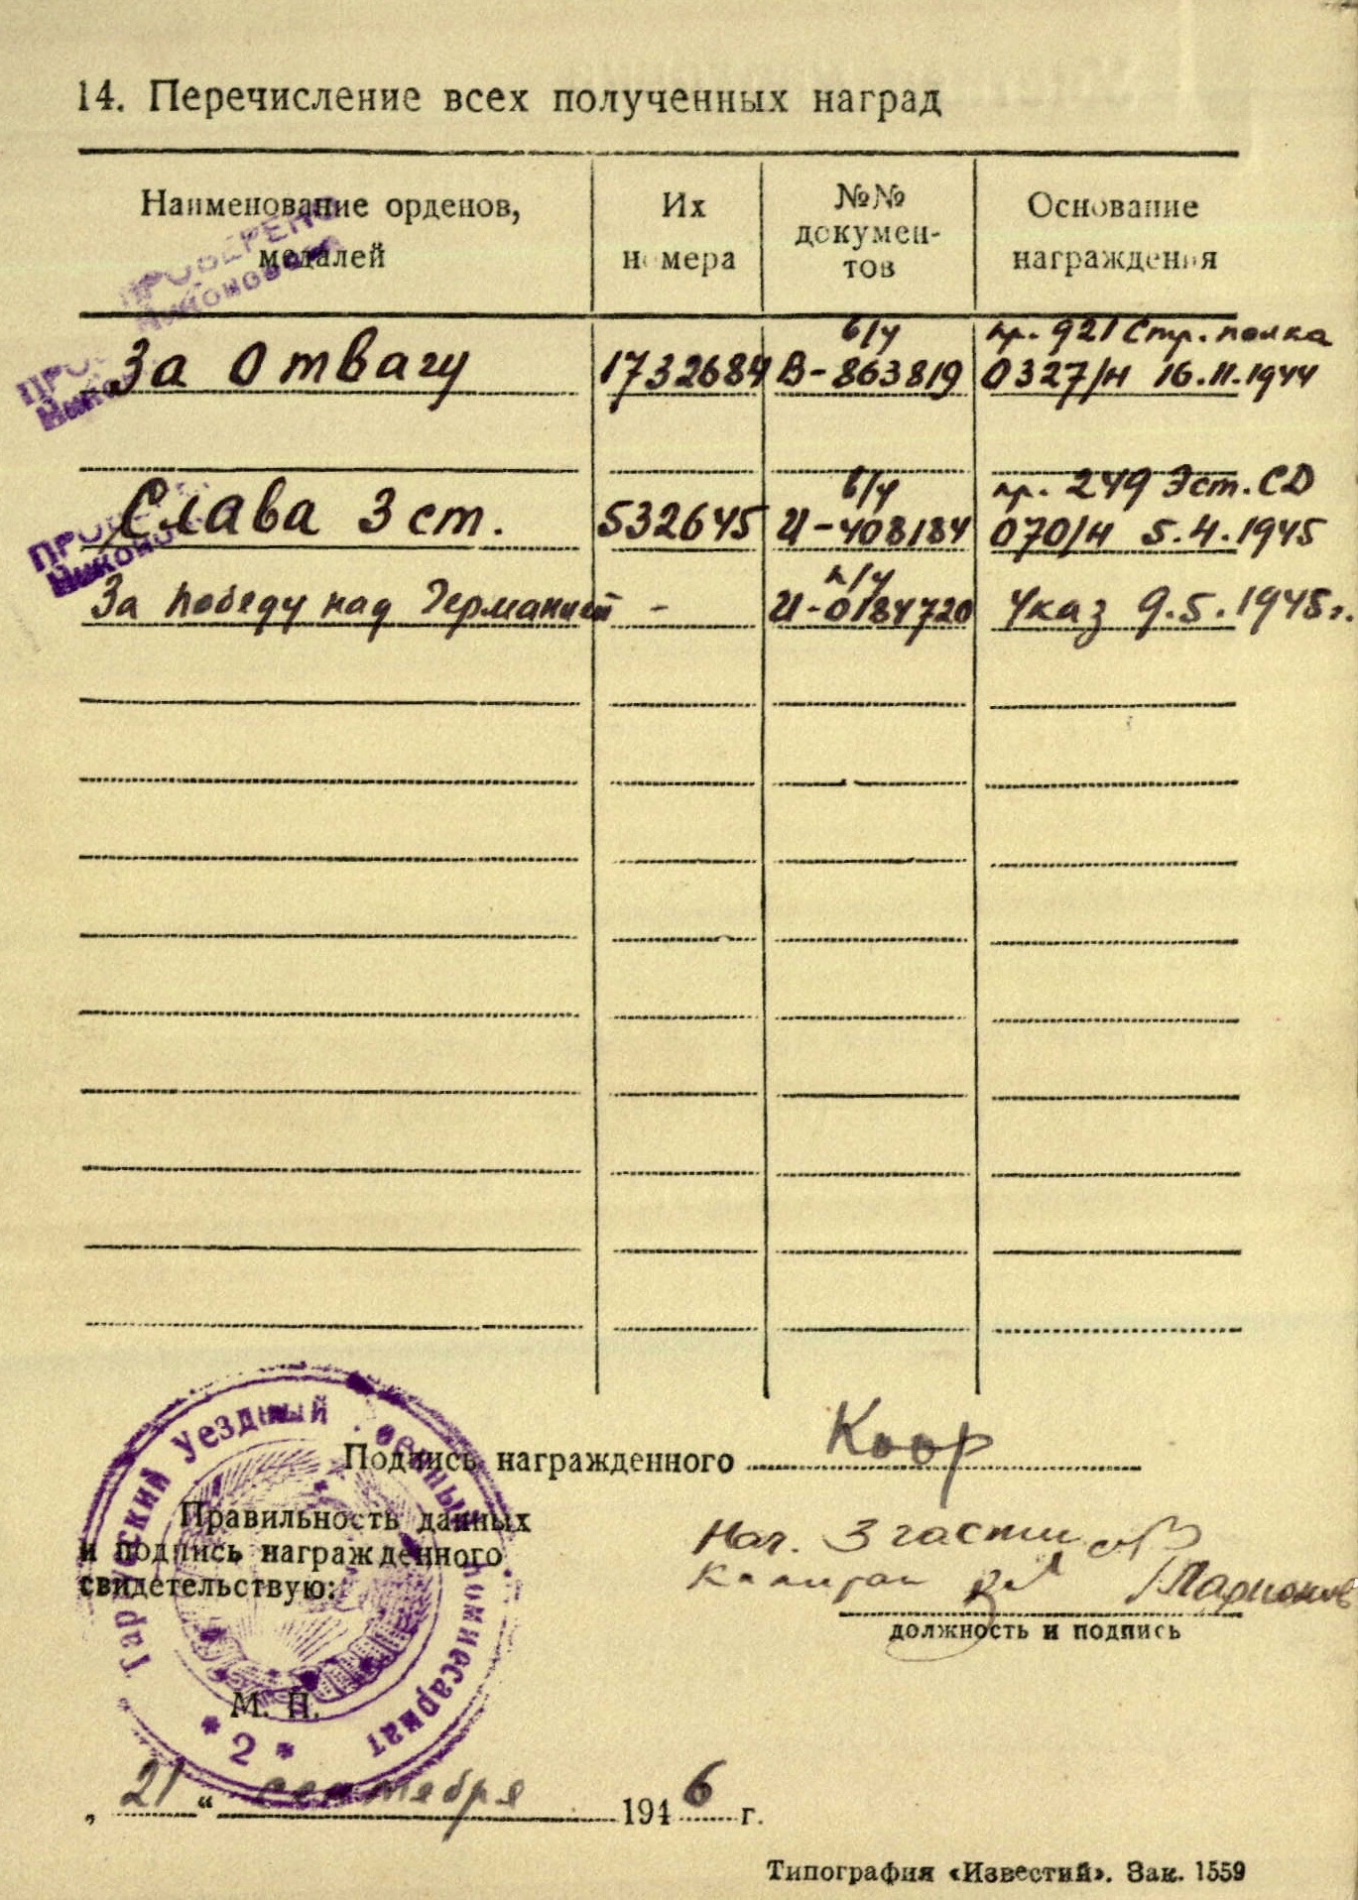 14. Перечисление всех полученных наград
Наименование орденов, медалей
Их номера
№№ докумен-тов
Основание награждения
ПРОВЕРЕНО
в/у пр. 921 Стр. полка
За Отвагу 1732684 В-863819 0327/н 16.11.1944
в/у пр. 249 Эст. СД
Слава 3 ст. 532645 И-408184 070/н 5.4.1945
За победу над Германией - И-0184720 Указ 9.5.1945г.
Подпись награжденного Коор
Правильность данных
и подпись награжденного
свидетельствую:
Нач. 3 части
Капитан
должность и подпись
М. П.
Тартуский Уездный Военный Комиссариат
* 2 *
„ 21 “ сентября 1946 г.
Типография «Известий». Зак. 1559